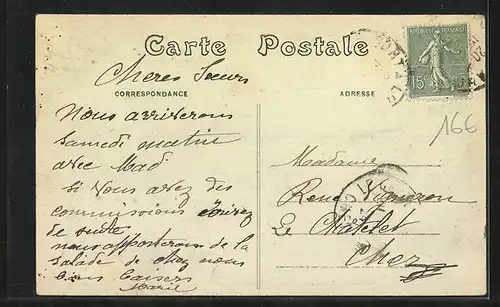 Carte Postale
Chères Sœurs
CORRESPONDANCE
ADRESSE
Nous arriverons
samedi matin
avec Mad
Si Vous avez des
commissions écrivez
de suite
nous apporterons de la
salade de chez nous
bons baisers
Marie
REPUBLIQUE FRANÇAISE
15
16€
Madame
René Vigneron
Le Chatelet
Cher